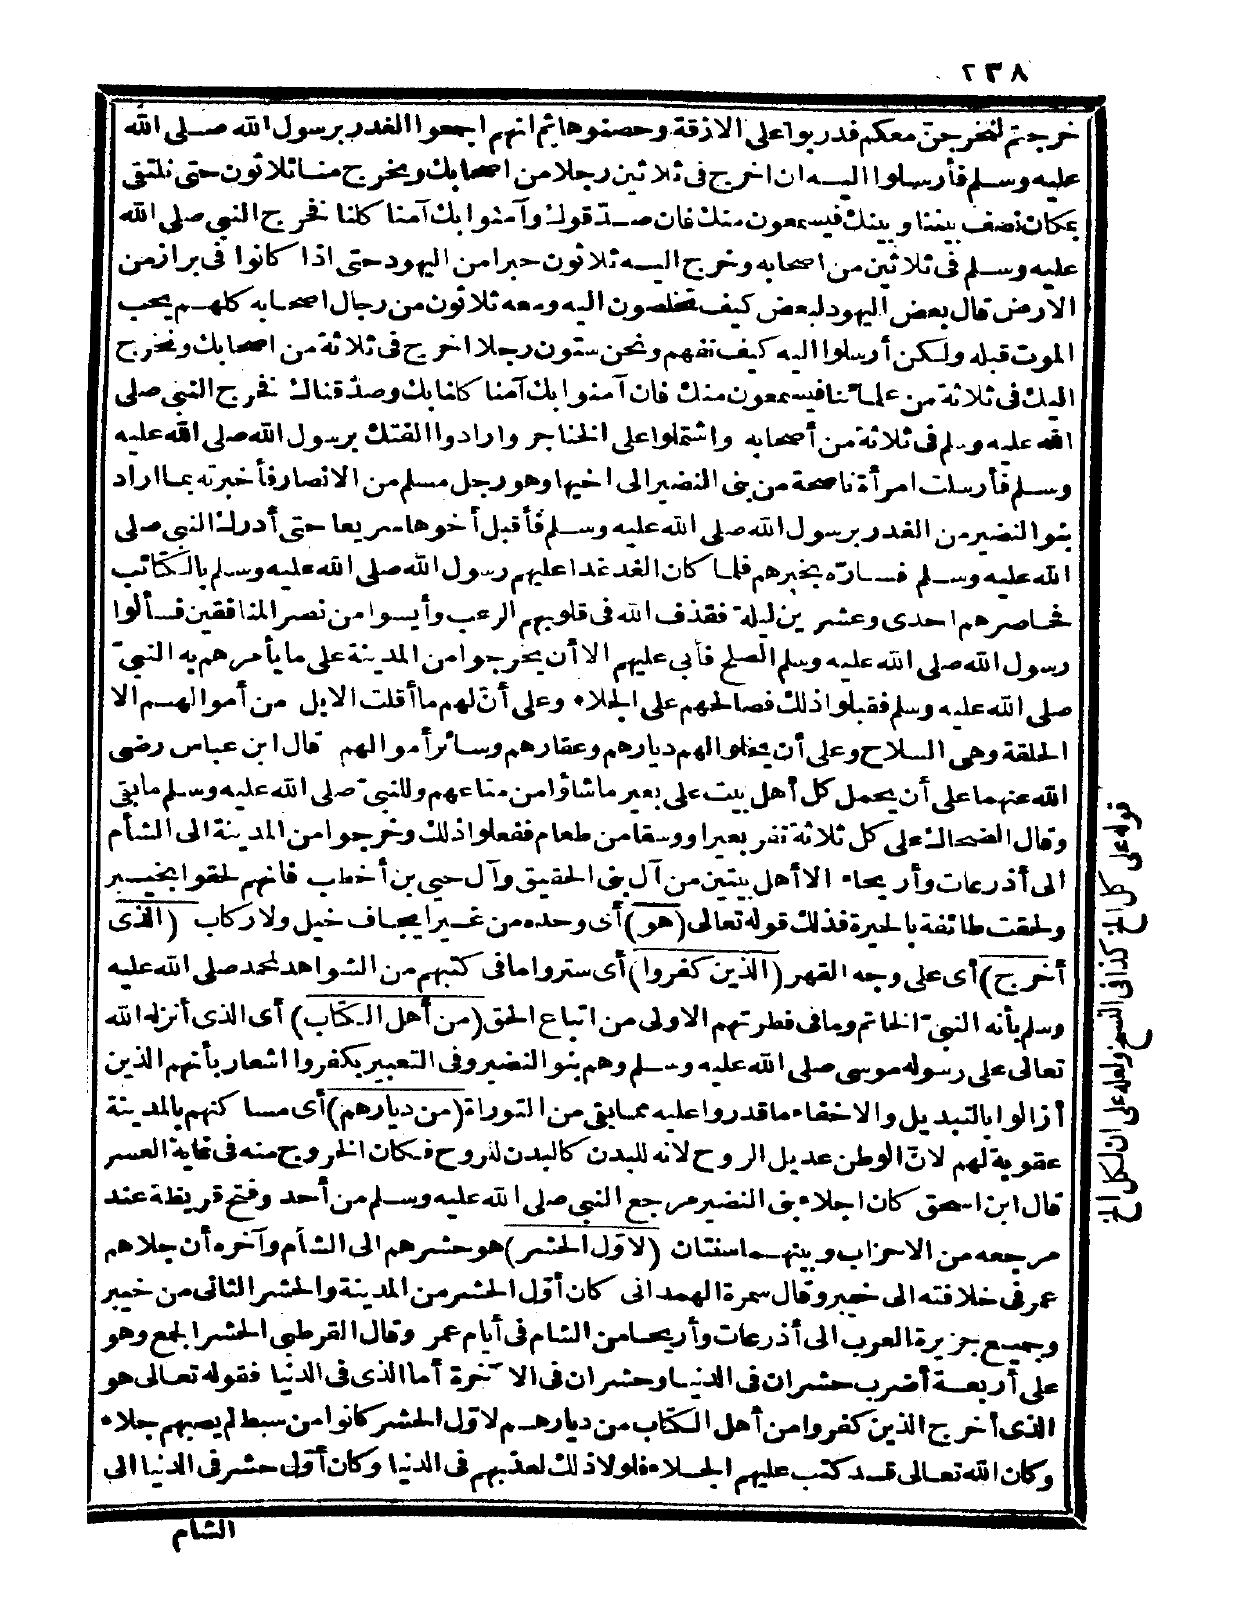 ٢٣٨
خرجتم لنخرجن معكم فدربوا على الازقة وحصنوها ثم انهم اجمعوا الغدر برسول الله صلى الله
عليه وسلم فأرسلوا اليه ان اخرج فى ثلاثين رجلا من اصحابك ويخرج منا ثلاثون حتى نلتقى
بمكان نصف بيننا وبينك فيسمعون منك فان صدقوك وآمنوا بك آمنا كلنا فخرج النبي صلى الله
عليه وسلم فى ثلاثين من اصحابه وخرج اليه ثلاثون حبرا من اليهود حتى اذا كانوا فى براز من
الارض قال بعض اليهود لبعض كيف تخلصون اليه ومعه ثلاثون من رجال اصحابه كلهم يحب
الموت قبله ولكن أرسلوا اليه كيف نفهم ونحن ستون رجلا اخرج فى ثلاثة من اصحابك ونخرج
اليك فى ثلاثة من علمائنا فيسمعون منك فان آمنوا بك آمنا كلنا بك وصدقناك فخرج النبي صلى
الله عليه وسلم فى ثلاثة من أصحابه واشتملوا على الخناجر وارادوا الفتك برسول الله صلى الله عليه
وسلم فأرسلت امرأة ناصحة من بنى النضير الى اخيها وهو رجل مسلم من الانصار فأخبرته بما اراد
بنو النضير من الغدر برسول الله صلى الله عليه وسلم فأقبل أخوها سريعا حتى أدرك النبي صلى
الله عليه وسلم فسارّه بخبرهم فلما كان الغد غدا عليهم رسول الله صلى الله عليه وسلم بالكتائب
فحاصرهم احدى وعشرين ليلة فقذف الله فى قلوبهم الرعب وأيسوا من نصر المنافقين فسألوا
رسول الله صلى الله عليه وسلم الصلح فأبى عليهم الا أن يخرجوا من المدينة على ما يأمرهم به النبيّ
صلى الله عليه وسلم فقبلوا ذلك فصالحهم على الجلاء وعلى أنّ لهم ما أقلت الابل من أموالهم الا
الحلقة وهى السلاح وعلى أن يخلوا لهم ديارهم وعقارهم وسائر أموالهم قال ابن عباس رضى
الله عنهما على أن يحمل كل أهل بيت على بعير ما شاؤا من متاعهم وللنبيّ صلى الله عليه وسلم ما بقى
وقال الضحاك على كل ثلاثة نفر بعيرا ووسقا من طعام ففعلوا ذلك وخرجوا من المدينة الى الشأم
الى أذرعات وأريحاء الا أهل بيتين من آل بنى الحقيق وآل حيي بن أخطب فانهم لحقوا بخيبر
ولحقت طائفة بالحيرة فذلك قوله تعالى (هو) أى وحده من غير ايجاف خيل ولا ركاب (الذى
أخرج) أى على وجه القهر (الذين كفروا) أى ستروا ما فى كتبهم من الشواهد لمحمد صلى الله عليه
وسلم بأنه النبيّ الخاتم وما فى فطرتهم الاولى من اتباع الحق (من أهل الكتاب) أى الذى أنزله الله
تعالى على رسوله موسى صلى الله عليه وسلم وهم بنو النضير وفى التعبير بكفروا اشعار بأنهم الذين
أزالوا بالتبديل والاخفاء ما قدروا عليه مما بقى من التوراة (من ديارهم) أى مساكنهم بالمدينة
عقوبة لهم لانّ الوطن عديل الروح لانه للبدن كالبدن للروح فكان الخروج منه فى غاية العسر
قال ابن اسحق كان اجلاء بنى النضير مرجع النبي صلى الله عليه وسلم من أحد وفتح قريظة عند
مرجعه من الاحزاب وبينهما سنتان (لاوّل الحشر) هو حشرهم الى الشأم وآخره أن جلاهم
عمر فى خلافته الى خيبر وقال سمرة الهمدانى كان أوّل الحشر من المدينة والحشر الثانى من خيبر
وجميع جزيرة العرب الى أذرعات وأريحا من الشام فى أيام عمر وقال القرطبى الحشر الجمع وهو
على أربعة أضرب حشران فى الدنيا وحشران فى الآخرة أما الذى فى الدنيا فقوله تعالى هو
الذى أخرج الذين كفروا من أهل الكتاب من ديارهم لاوّل الحشر كانوا من سبط لم يصبهم جلاء
وكان الله تعالى قد كتب عليهم الجلاء فلولا ذلك لعذبهم فى الدنيا وكان أوّل حشر فى الدنيا الى
الشام
قوله على كل الخ كذا فى النسخ ولعله على ان لكل الخ